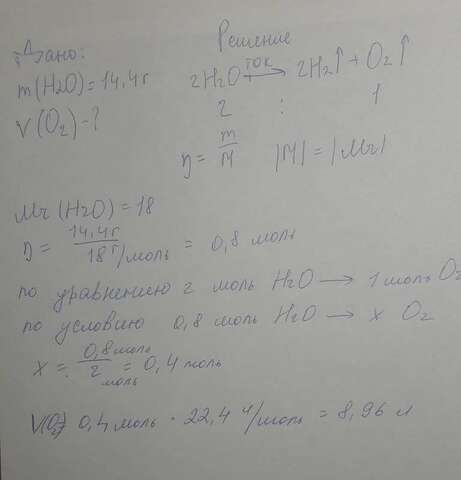 Дано:
Решение
m(H2O)=14,4г
2H2O ток→ 2H2↑ + O2↑
V(O2)=?
2 : 1
n = m/M |M| = |Mr|
Mr(H2O)=18
n = 14,4г / 18 г/моль = 0,8 моль
по уравнению 2 моль H2O → 1 моль O2
по условию 0,8 моль H2O → x O2
x = 0,8 моль / 2 моль = 0,4 моль
V(O2)= 0,4 моль · 22,4 л/моль = 8,96 л